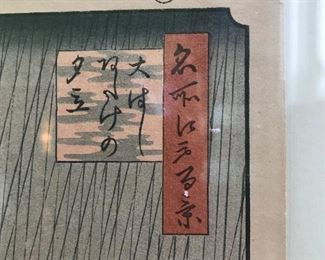 名所江戸百景
大はし
あたけの
夕立